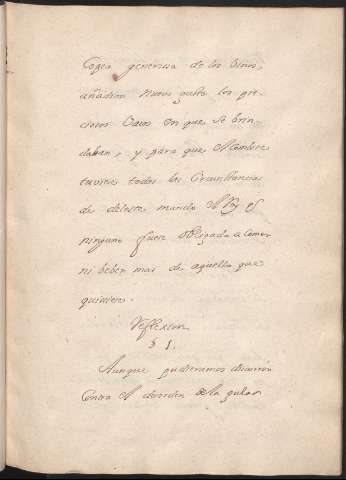 Copia generosa de los Vinos,
añadian Nuevo gusto los pre-
ciosos Vasos en que se brin-
daban, y para que el combite
tuviese todas las Circunstancias
de deleite mando el Rey q
ninguno fuese obligado a comer
ni beber mas de aquello que
quisiere.
Reflexion
§ 1.
Aunque pudieramos discurrir
Contra el desorden de la gula